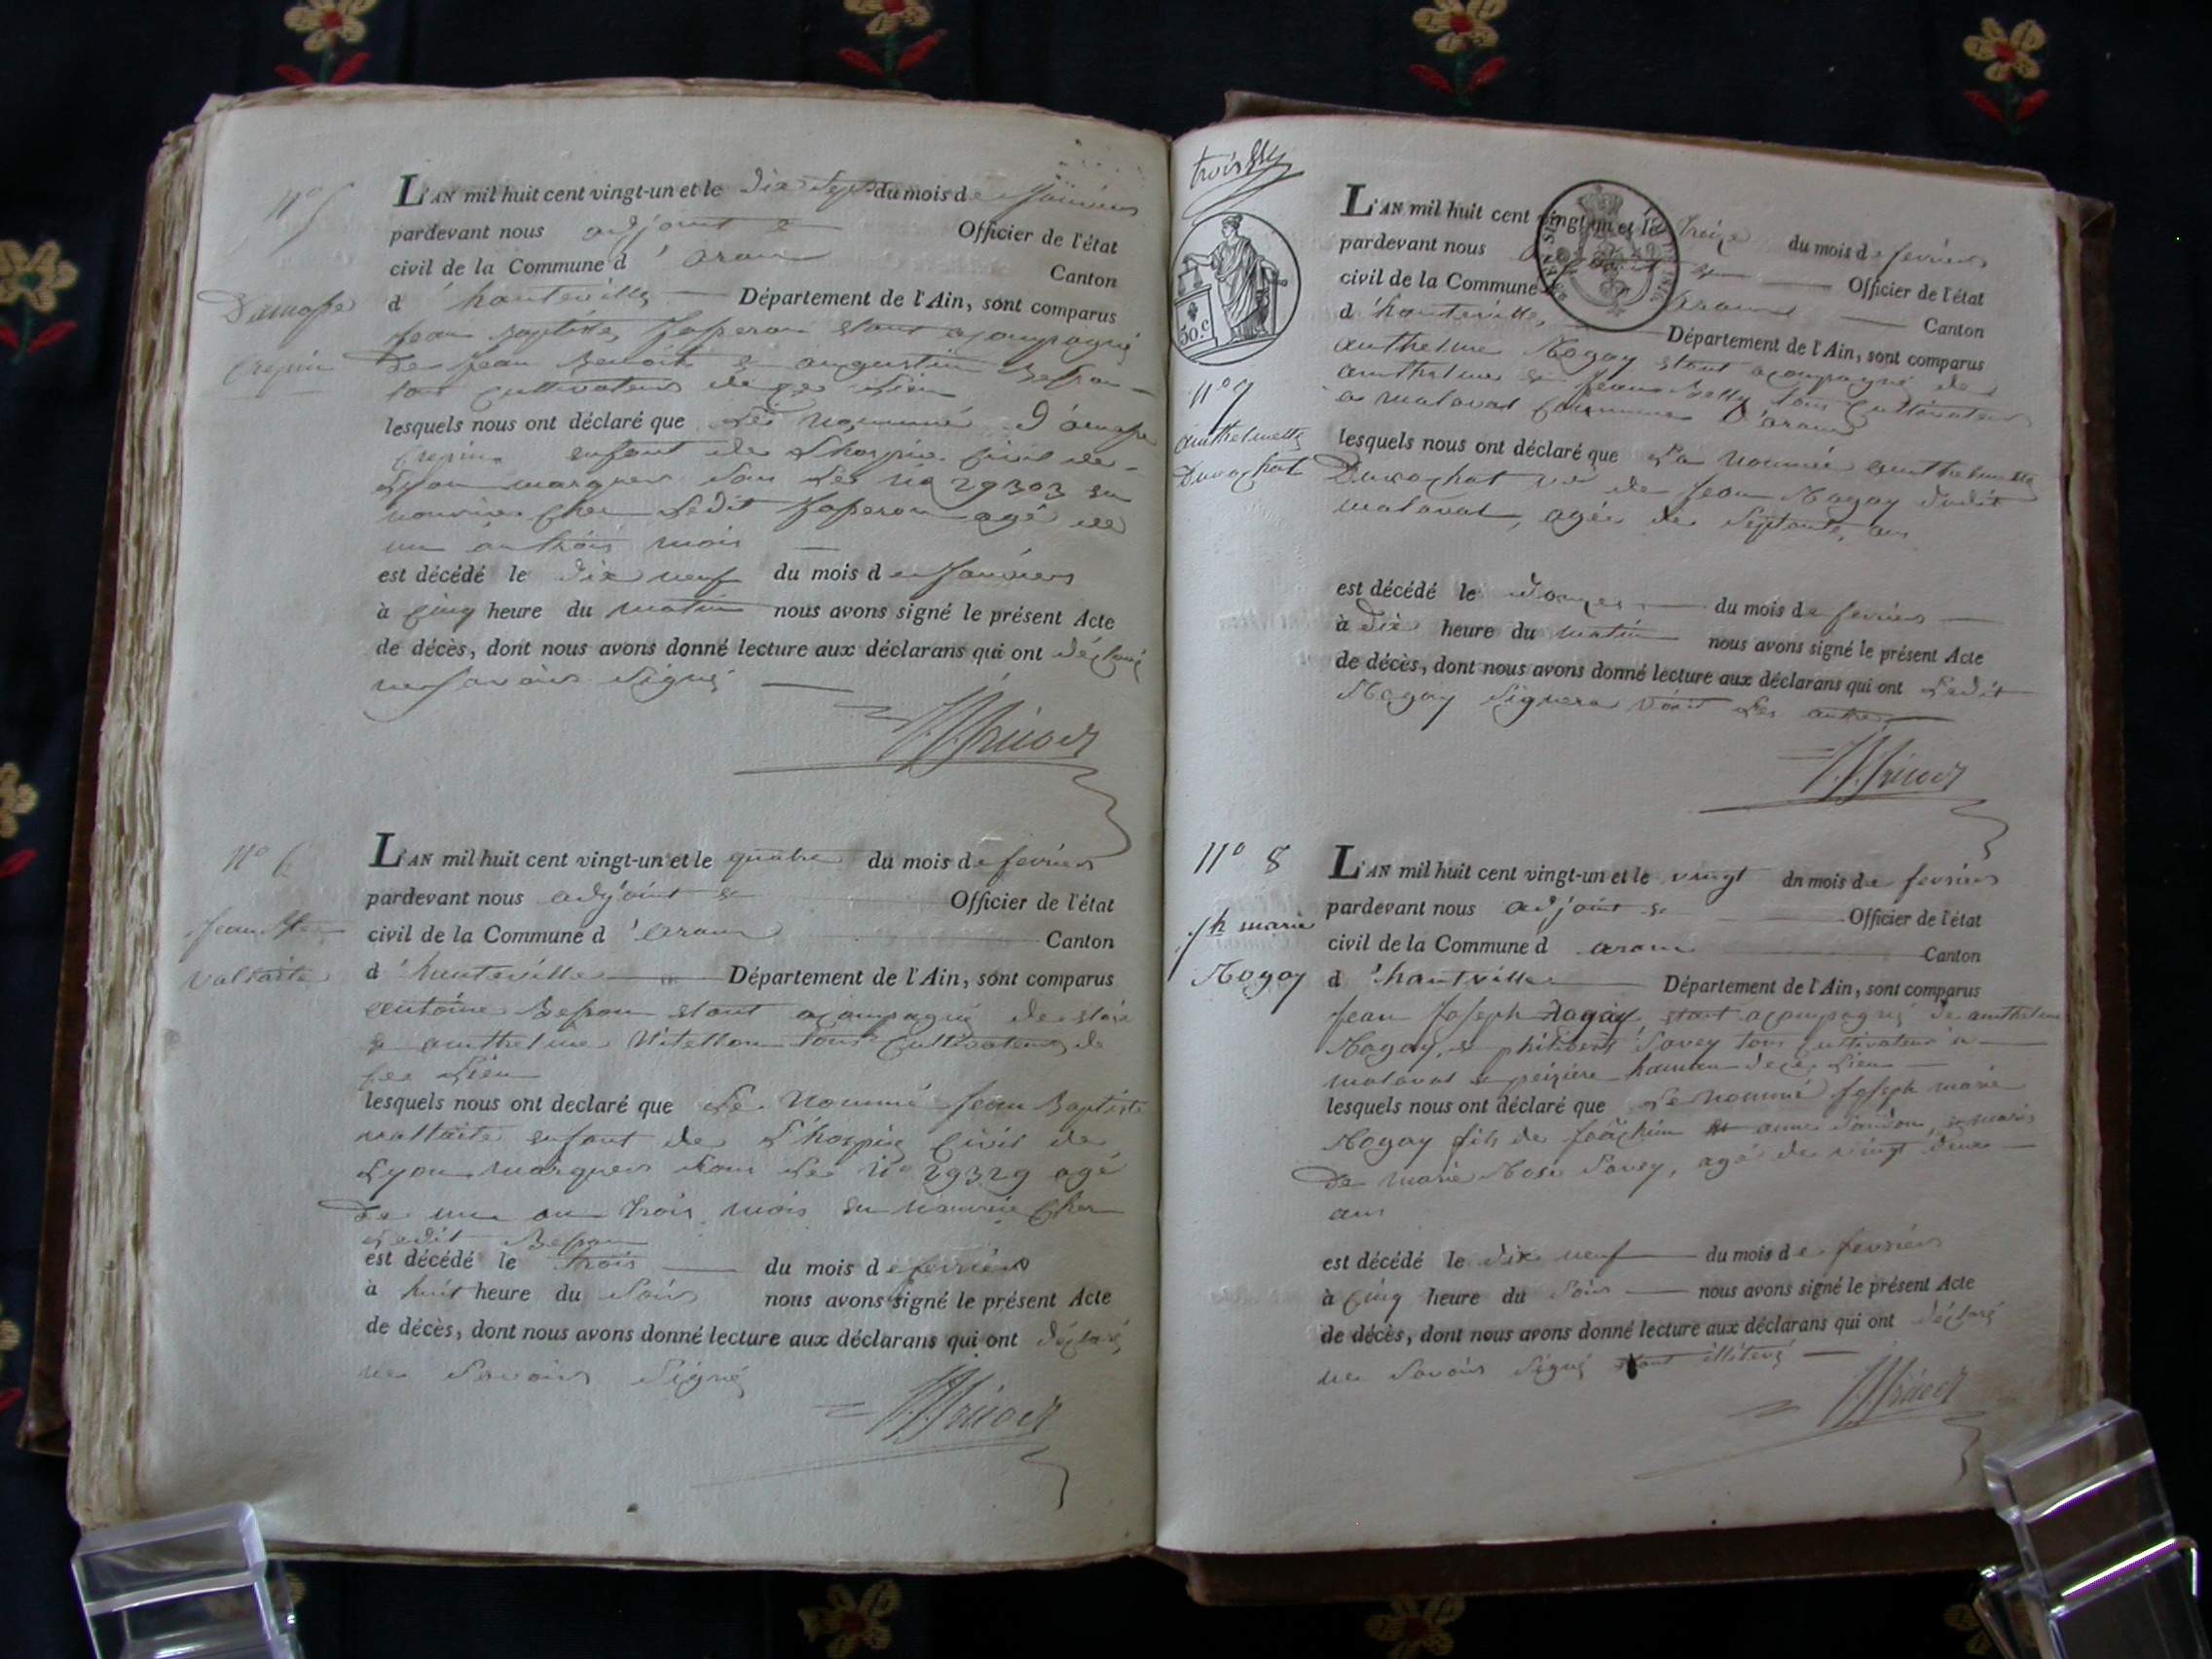 N° 5
Damasse
Crepin
L'AN mil huit cent vingt-un et le dix Sept du mois de Janviers
pardevant nous adjoint Officier de l'état
civil de la Commune d'aran Canton
d'hauteville Département de l'Ain, sont comparus
Jean Baptiste Jasseron etant acompagné
De Jean Benoit & augustin Besson
tous cultivateurs de ce Lieu
lesquels nous ont déclaré que Le Nommé Damasse
Crepin enfant de L'hospice Civil de
Lyon marquer Sous Les N° 29303 en
nourrice Cher Ledit Jasseron agé de
un an trois mois
est décédé le dix neuf du mois de Janviers
à cinq heure du matin nous avons signé le présent Acte
de décès, dont nous avons donné lecture aux déclarans qui ont déclaré
ne Savoir Signé
N° 6
Jean Bte
Valtaite
L'AN mil huit cent vingt-un et le quatre du mois de fevriers
pardevant nous adjoint Officier de l'état
civil de la Commune d'aran Canton
d'hauteville Département de l'Ain, sont comparus
antoine Besson etant acompagné de
& anthelme Vitellon tous Cultivateurs de
ce Lieu
lesquels nous ont declaré que Le Nommé Jean Baptiste
enfant de L'hospice Civil de
Lyon marquer Sous Le N° 29329 agé
De un an trois mois en nourrice Cher
Ledit Besson
est décédé le trois du mois de fevriers
à huit heure du Soir nous avons signé le présent Acte
de décès, dont nous avons donné lecture aux déclarans qui ont déclaré
ne Savoirs Signé
trois
50.c
N° 7
anthelmette
Durochat
L'AN mil huit cent vingt-un et le treize du mois de fevriers
pardevant nous Officier de l'état
civil de la Commune d'aran Canton
d'hauteville, Département de l'Ain, sont comparus
anthelme Nogay etant acompagné de
anthelme & Jean Belly tous Cultivateurs
a malaval Commune D'aran
lesquels nous ont déclaré que La Nommée anthelmette
Durochat de Jean Nogay dudit
malaval, agée de Septante, ans
est décédé le Douze du mois de fevriers
à Dix heure du matin nous avons signé le présent Acte
de décès, dont nous avons donné lecture aux déclarans qui ont Ledit
Nogay Signera Les autre
N° 8
Jh marie
Nogay
L'AN mil huit cent vingt-un et le vingt dn mois de fevriers
pardevant nous adjoint Officier de l'état
civil de la Commune d aran Canton
d'hautville Département de l'Ain, sont comparus
Jean Joseph Nogay etant acompagné de anthelme
Nogay, & philibert Savey tous cultivateur a
malaval & hameau de ce Lieu
lesquels nous ont déclaré que Le Nommé Joseph marie
Nogay fils de Joachim anne marie
De marie Rose Savey, agé de vingt deux
ans
est décédé le dix neuf du mois de fevriers
à cinq heure du Soir nous avons signé le présent Acte
de décès, dont nous avons donné lecture aux déclarans qui ont déclaré
ne Savoir Signé etant illiteré